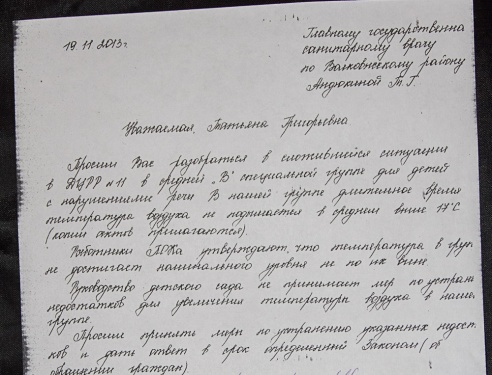 19.11 2013г.
Главному государственна
санитарному врачу
по Волковысскому району
Андюкиной Т.Г.
Уважаемая, Татьяна Григорьевна
Просим Вас разобраться в сложившийся ситуации
в ЯЦРР №11 в средней "В" специальной группе для детей
с нарушениями речи В нашей группе длительное время
температура воздуха не поднимается в среднем выше 17°С
(копии актов прилагаются).
Работники утверждают, что температура в груп
не достигает номинального уровня не по их вине
Руководство детского сада не принимает мер по устране
недостатков для увеличения температуры воздуха в нашей
группе.
Просим принять меры по устранению указанных недост
ков и дать ответ в срок определенный Законом (об
обращении граждан)